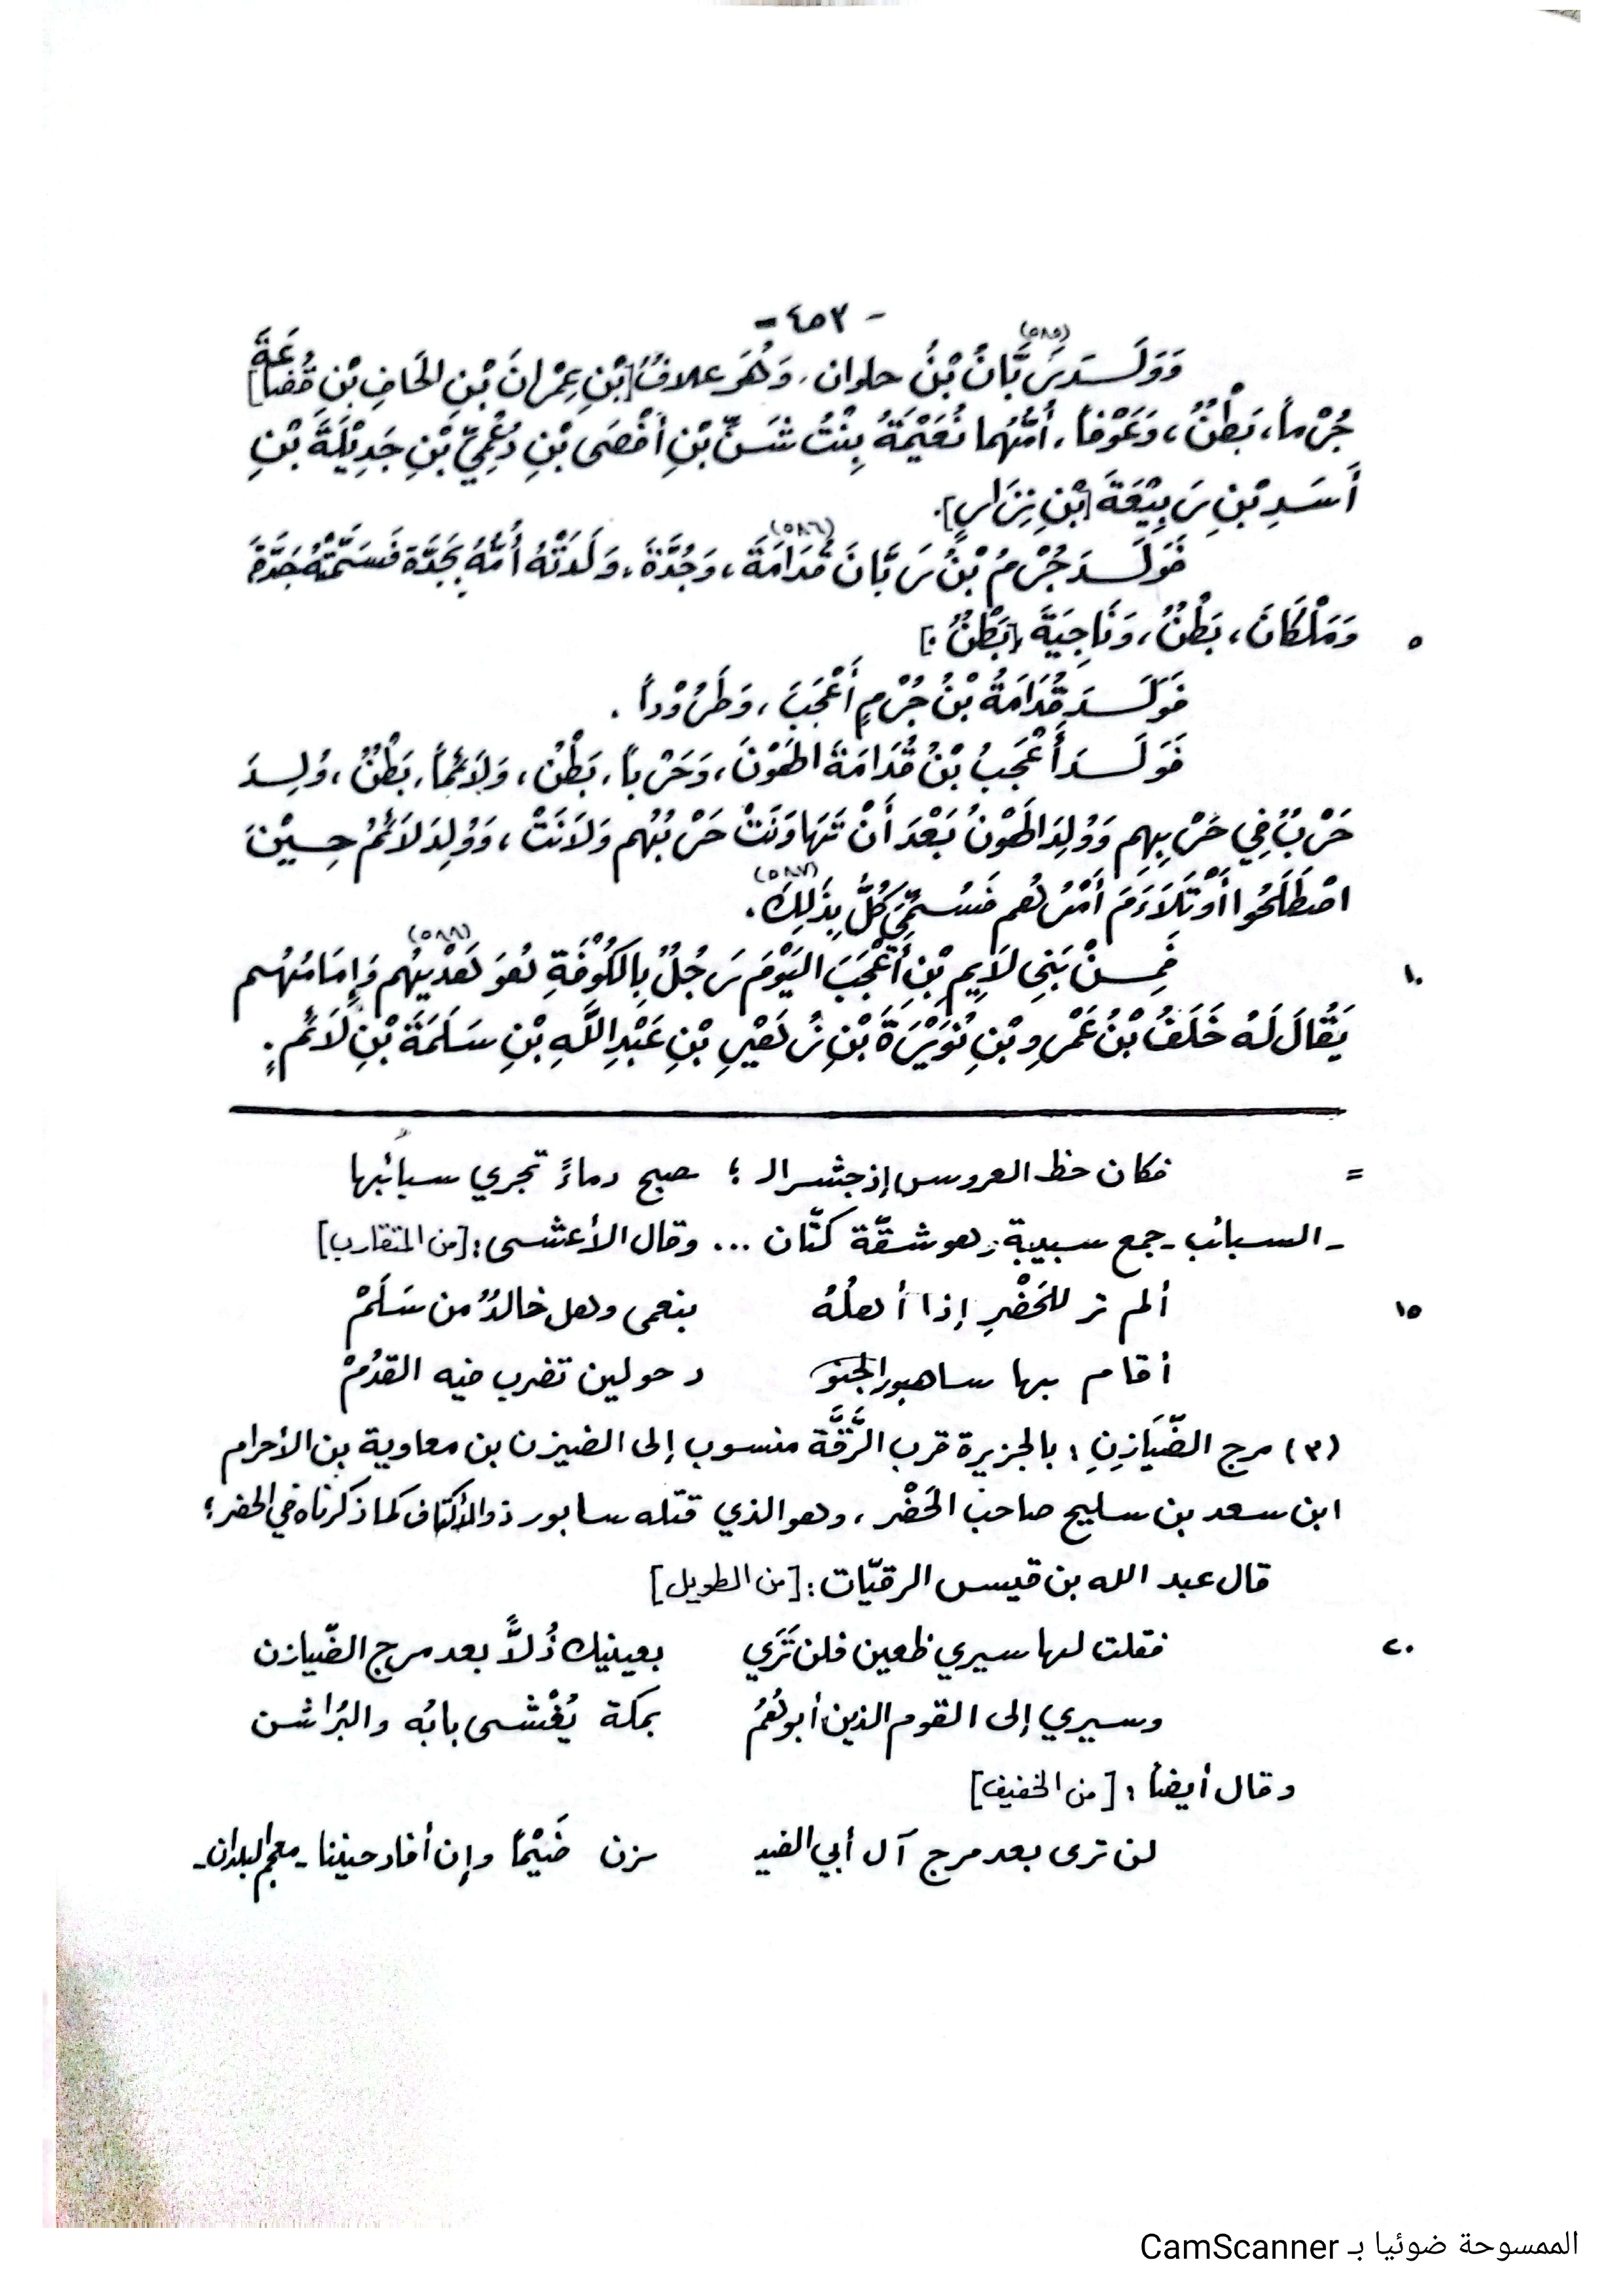 - ٤٥٣ -
وَوَلَـــدَ رَبَّانُ(٥٨٥) بْنُ حلوان، وَهُوَ علافُ [بْنِ عِمْرانَ بْنِ الحَافِ بْنِ قُضَاعَةَ]
جُرْماً، بَطْنٌ، وَعَوْفاً، أُمُّهُما نُعَيْمَةُ بِنْتُ شَنِّ بْنِ أَفْصَى بْنِ دُعْمِيِّ بْنِ جَدِيْلَةَ بْنِ
أَسَدِ بْنِ رَبِيْعَةَ [بْنِ نِزَارٍ].
فَوَلَـــدَ جُرْمُ بْنُ رَبَّانَ قُدَامَةَ(٥٨٦)، وَجُدَّةَ، وَلَدَتْهُ أُمُّهُ بِجُدَّةَ فَسَمَّتْهُ جَدَّةَ
٥ وَمَلْكَانَ، بَطْنٌ، وَنَاجِيَةَ [بَطْنٌ.]
فَوَلَـــدَ قُدَامَةُ بْنُ جُرْمٍ أَعْجَبَ، وَطَرُوْداً.
فَوَلَـــدَ أَعْجَبُ بْنُ قُدَامَةَ الهَوْنَ، وَحَرْباً، بَطْنٌ، وَلَائِماً، بَطْنٌ، وُلِـدَ
حَرْبٌ فِي حَرْبِهِم وَوُلِدَ الهَوْنُ بَعْدَ أَنْ تَهَاوَنَتْ حَرْبُهُم وَلَانَتْ، وَوُلِدَ لَائِمُ حِـيْنَ
اصْطَلَحُوا أَوْ تَلَاءَمَ أَمْرُهُم فَسُمِّيَ كُلٌّ بِذَلِكَ(٥٨٧).
١٠ فَمِـــنْ بَنِي لَايِمِ بْنِ أَعْجَبَ اليَوْمَ رَجُلٌ بِالكُوْفَةِ هُوَ هَدْيُهُم(٥٨٨) وَإِمَامُهُـــم
يُقَالَ لَهُ خَلَفُ بْنُ عَمْرِو بْنِ نُوَيْرَةَ بْنِ زُهَيْرِ بْنِ عَبْدِ اللَّهِ بْنِ سَلَمَةَ بْنِ لَائِمٍ.
= فكان حظ العروس إذ جشر الـ ؛ صبح دماءً تجري سبائبها
- السبائب - جمع سبيبة، وهو شقّة كتّان ... وقال الأعشى: [من المتقارب]
١٥ ألم تر للحَضْرِ إذا أهلُهُ بنعمى وهل خالدٌ من سَلَمْ
أقام بها ساهبور الجنو د حولين تضرب فيه القدُمْ
(٣) مرج الضَّيَازِنِ: بالجزيرة قرب الرَّقَّة منسوب إلى الضيزن بن معاوية بن الأحرام
ابن سعد بن سليح صاحب الحَضْر، وهو الذي قتله سابور ذو الأكتاف كما ذكرناه في الحضر؛
قال عبد الله بن قيس الرقيّات: [من الطويل]
٢٠ فقلت لها سيري ظعين فلن تَرَي بعينيك ذُلاًّ بعد مرج الضّيازن
وسيري إلى القوم الذين أبوهُمُ بمكة يُغْشى بابُه والبُراشن
وقال أيضاً: [من الخفيف]
لن ترى بعد مرج آل أبي الضيـ ـزن ضَيْماً وإن أفاد حنينا - معجم البلدان -
الممسوحة ضوئيا بـ CamScanner